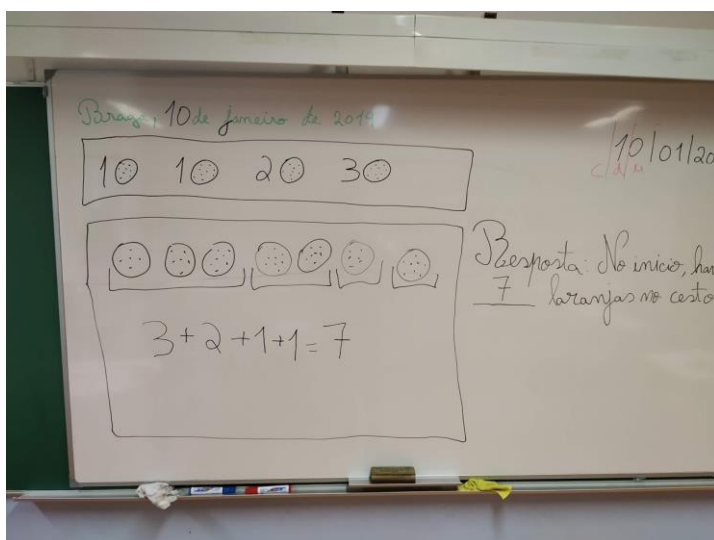 Braga, 10 de janeiro de 2019
10/01/20
c d u
1 1 2 3
3+2+1+1=7
Resposta: No início, hav
7 laranjas no cesto